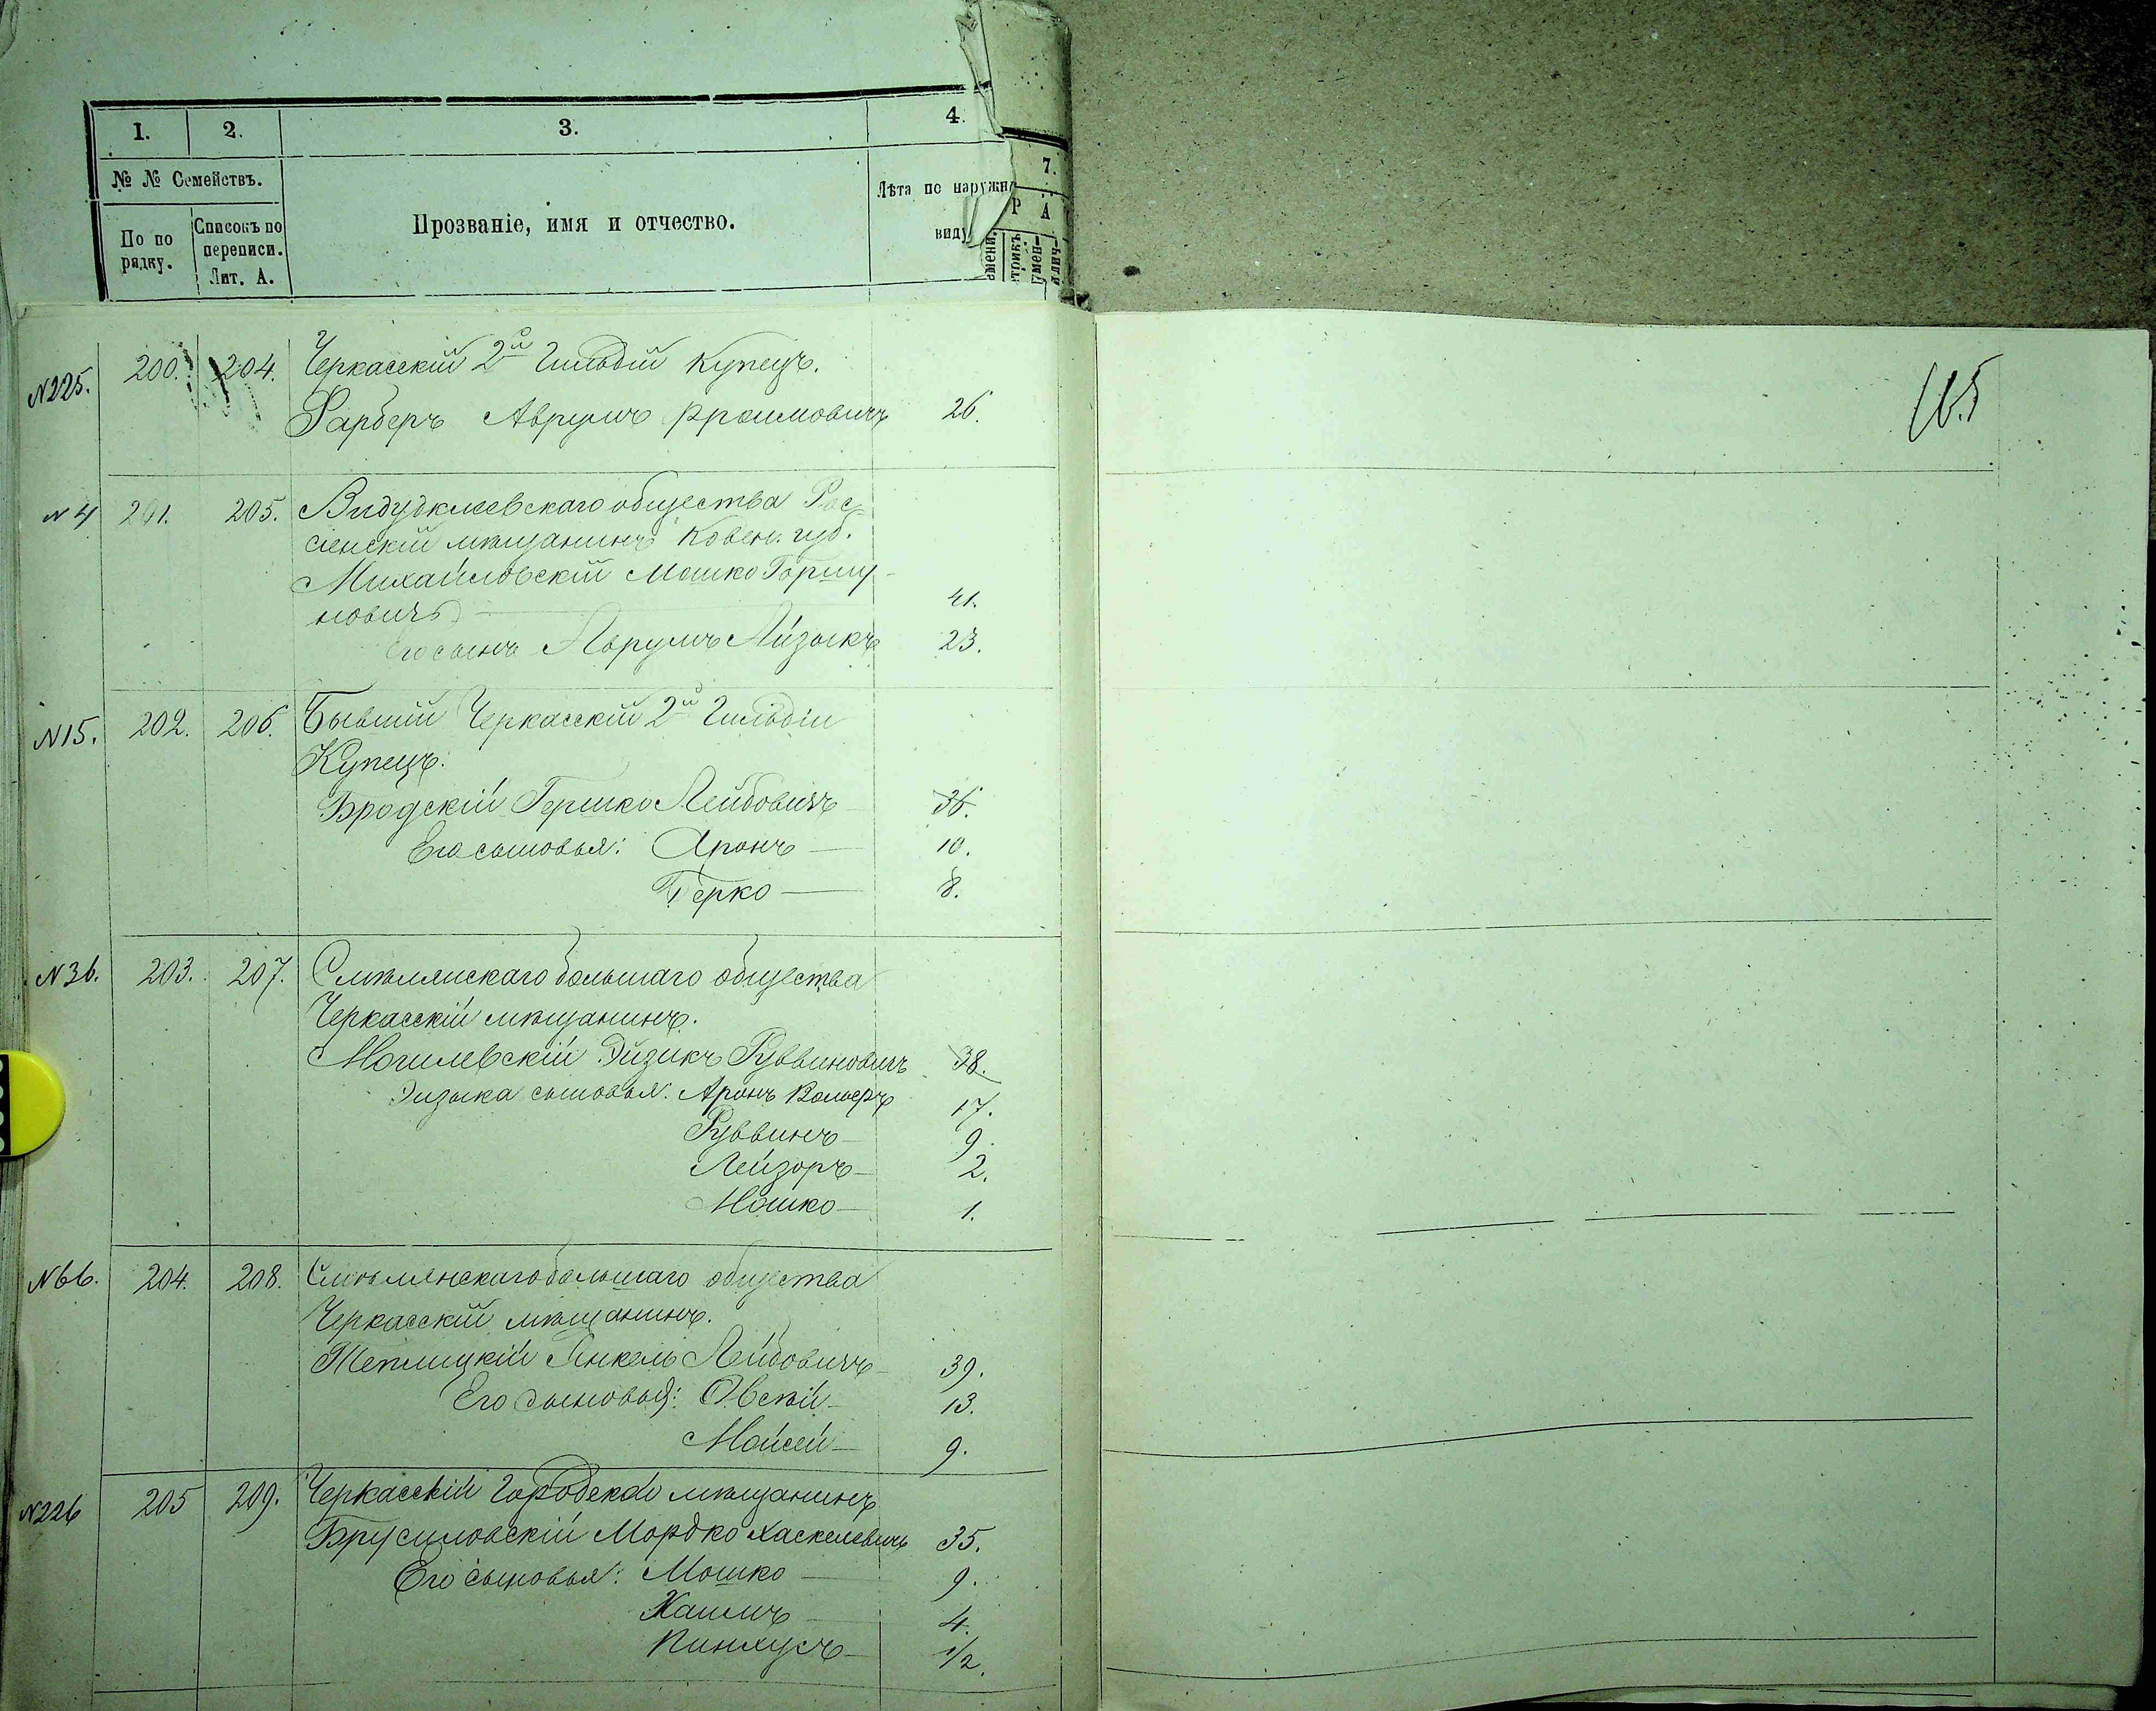 1. 2. 3. 4.
7.
№ № Семействъ.
Прозваніе, имя и отчество.
Лѣта по наружн
виду
Р А
По по
рядку.
Списокъ по
переписи.
Лит. А.
N225. 200. 204. Черкасскій 2й Гильдіи Купецъ.
Фарберъ Аврумъ Фроимовичъ 26.
N 4 201. 205. Видуклеевскаго общества Рос-
сіенскій мѣщанинъ Ковен. губ.
Михайловскій Мошко Горшу-
новичъ 41.
Его сынъ Аврумъ Айзыкъ 23.
N15. 202. 206. Бывшій Черкасскій 2й Гильдіи
Купецъ:
Бродскій Гершко Лейбовичъ 36.
Его сыновья: Аронъ 10.
Берко 8.
N36. 203. 207. Смѣлянскаго большаго общества
Черкасскій мѣщанинъ.
Могилевскій Эйзикъ Руввиновичъ 38.
Эизыка сыновья: Аронъ Вольеръ 17.
Руввинъ 9.
Лейзоръ 2.
Мошко 1.
N66. 204. 208. Смѣлянскаго большаго общества
Черкасскій мѣщанинъ.
Теплицкій Янкель Лейбовичъ 39.
Его сыновья: Овсій 13.
Мойсей 9.
N226 205 209. Черкасскій Городской мѣщанинъ
Брусиловскій Мордко Хаскелевичъ 35.
Его сыновья: Мошко 9.
Хаимъ 4.
Пинхусъ 1/2.